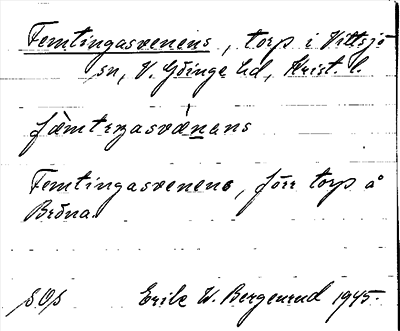 Femtingasvenens, torp i Vittsjö
sn, V. Göinge hd, Krist. l.
fæmtıŋasvænans
Femtingasvenens, förr torp å
Bröna.
SOS Erik W. Bergenrud 1945.